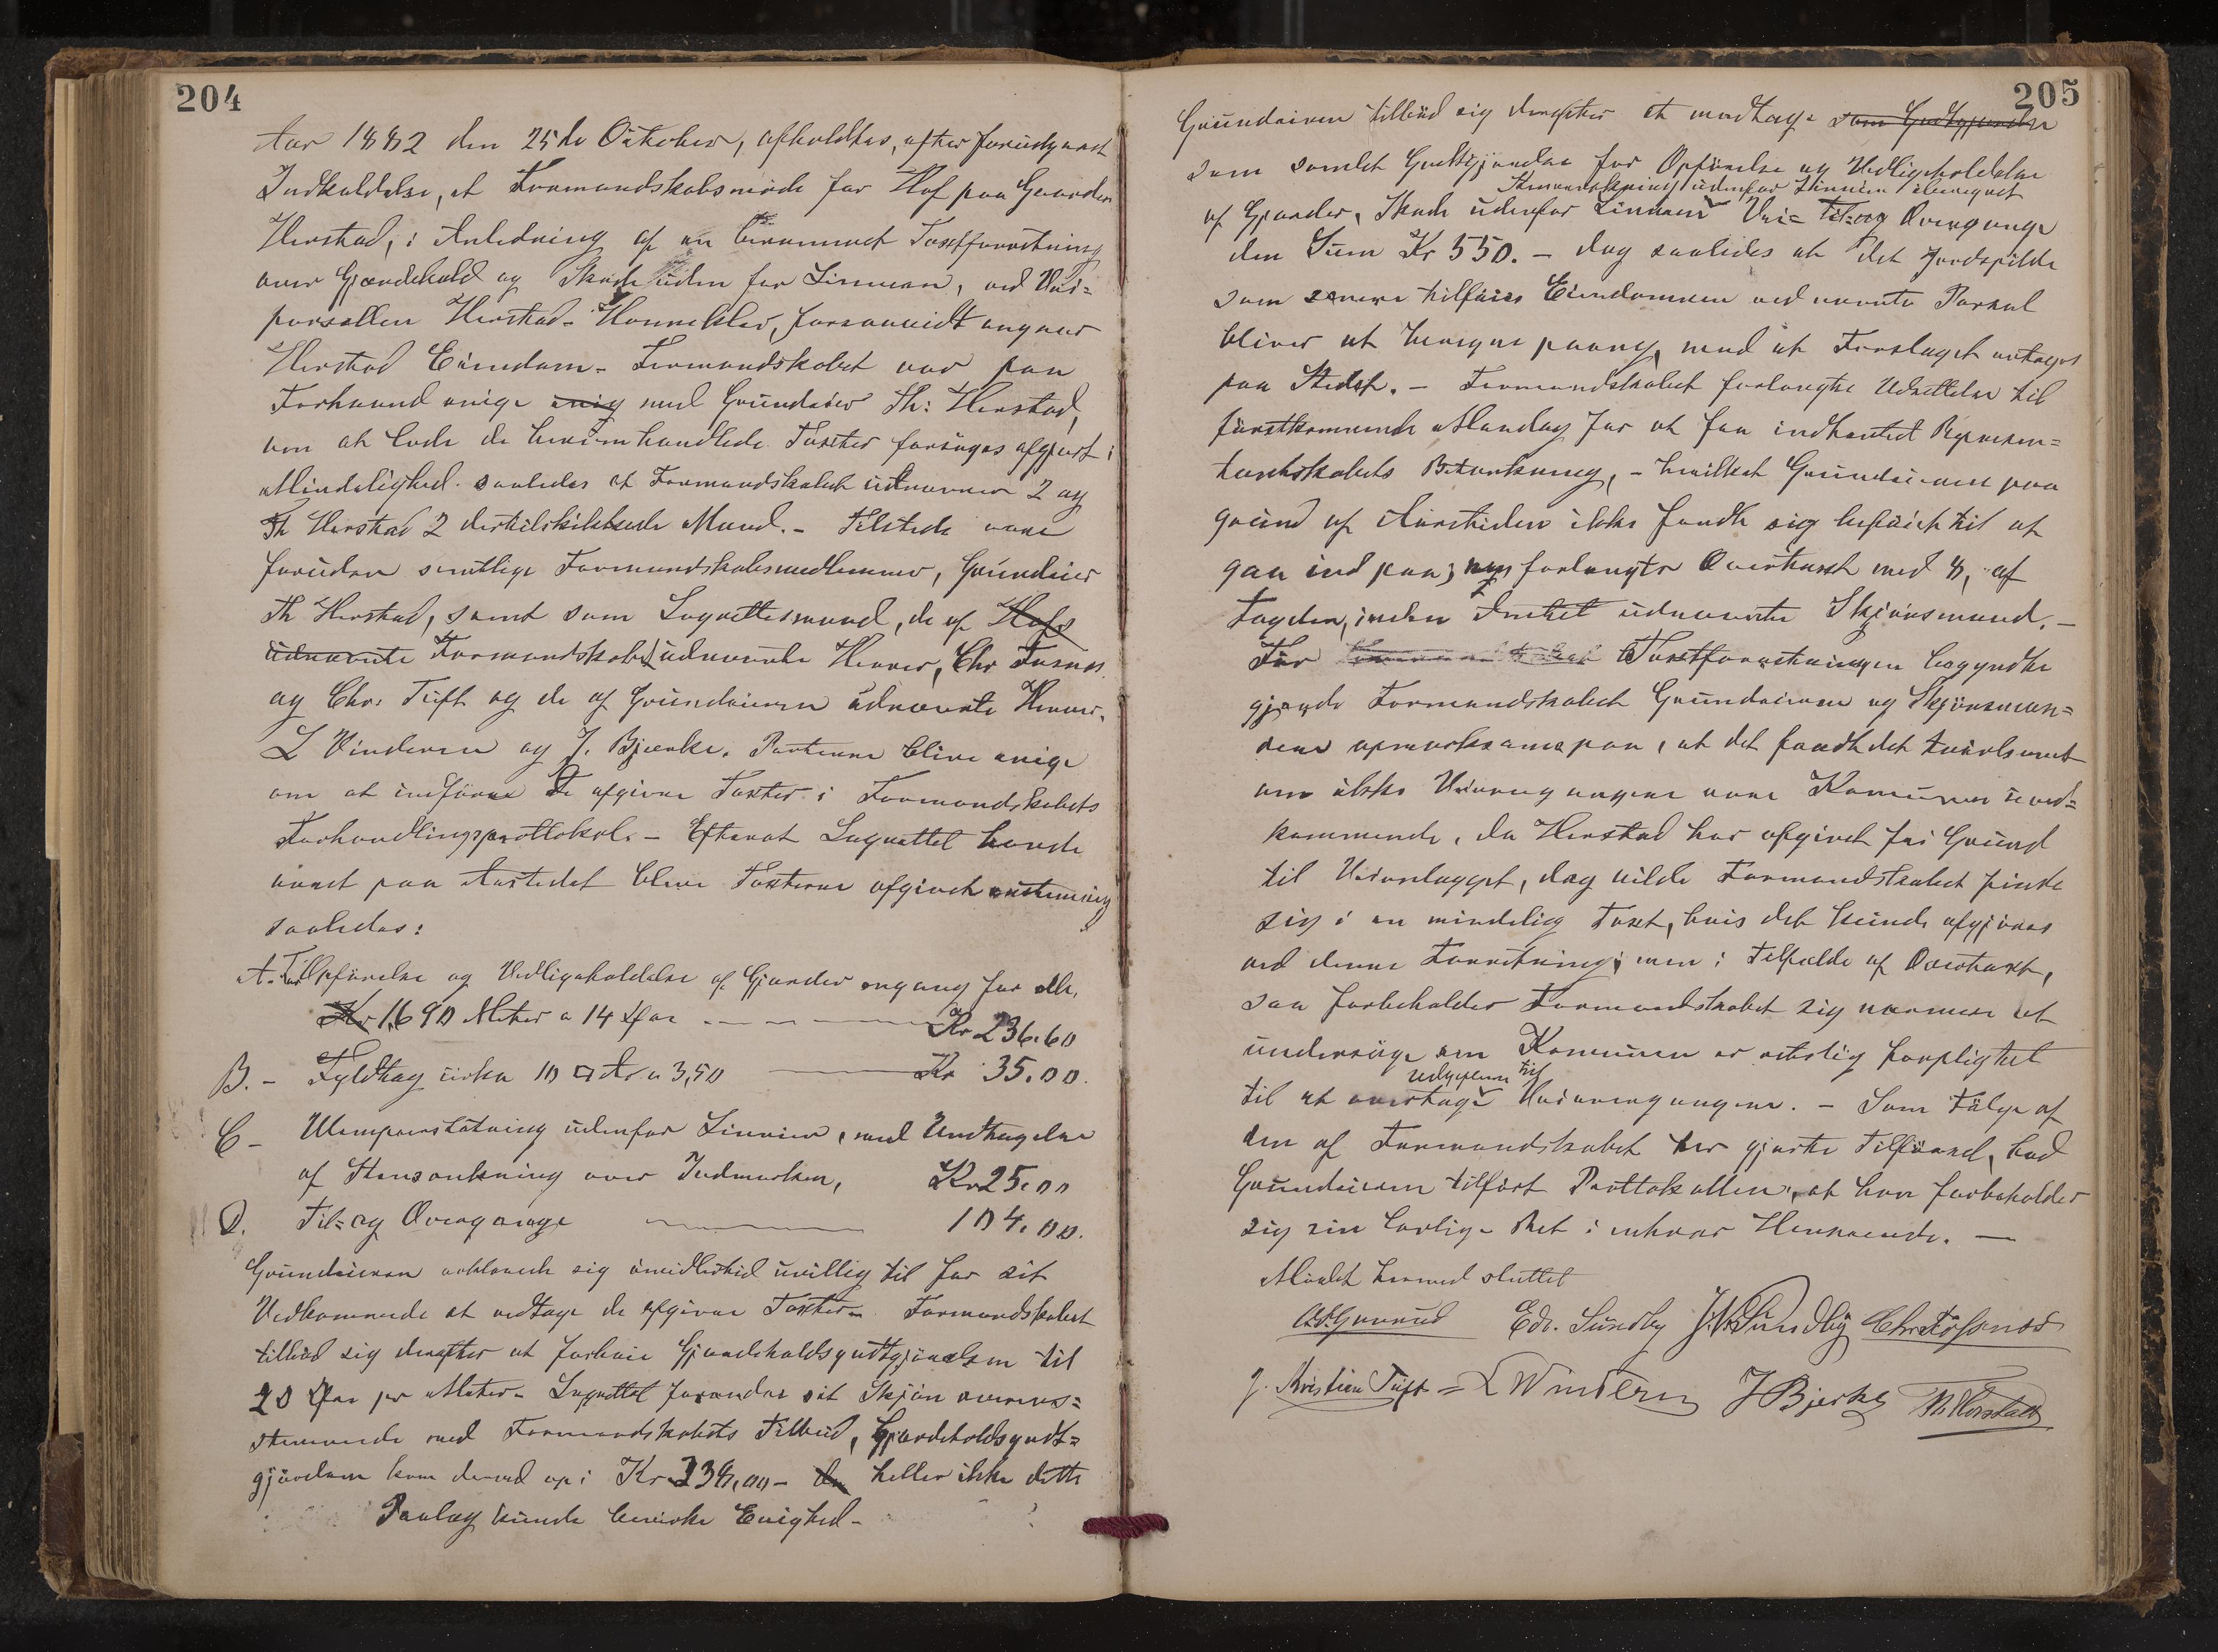 204
Aar 1882 den 25de Oktober, afholdtes, efter forudgaaet
Indkaldelse, et Formandskabsmøde for Hof paa Gaarden
Herstad, i Anledning af en berammet Taxtforretning
over Gjærdehold og Skade uden for Linnien, ved Vei=
parsellen Herstad - Hanneklev, forsaavidt angaar
Herstad Eiendom - Formandskabet var paa
Forhaand enige enig med Grundeier Th: Herstad,
om at lade de heromhandlede Taxter forsøges afgjort i
Mindelighed. saaledes at Formandskabet udnævner 2 og
Th Herstad 2 dertilskikkede Mænd. - Tilstede vare
foruden samtlige Formandskabsmedlemmer, Grundeier
Th Herstad, samt som Lagrettesmænd, de af Hofs
udnævnte Formandskabet udnævnte Herrer, Chr Fosnes
og Chr: Tuft og de af Grundeieren udnævnte Herrer.
L Vinderen og J. Bjerke. Parterne blive enige
om at indføre de afgivne Taxter i Formandskabets
Forhandlingsprottokol. - Efterat Lagrettet havde
været paa Aastedet bleve Taxterne afgivet enstemmig
saaledes:
A. For Opførelse og Vedligeholdelse af Gjærder engang for alle,
Kr 1,690 Meter a 14 Øre - - - Kr 236.60
B. - Fyldtag cirka 10 □ Ar a 3,50 Kr 35.00.
C - Ulempeerstatning udenfor Linnien, med Undtagelse
af Stensankning over Indmarken, Kr 25.00
D. Til= og Overgange 104.00.
Grundeieren erklærede sig imidlertid uvillig til for sit
Vedkommende at vedtage de afgivne Taxter - Formandskabet
tilbød sig derefter at forhøie Gjærdeholdsgodtgjørelsen til
20 Øre pr Meter - Lagrettet forandre sit Skjøn overens=
stemmende med Formandskabets Tilbud, Gjærdeholdsgodt=
gjørelsen kom derved op i Kr 338,00 - da heller ikke dette
Paalæg kunde bevirke Enighed -
205
Grundeieren tilbød sig derefter at modtage som Godtgjørelse
som samlet Godtgjørelse for Opførelse og Vedligeholdelse
Stensankning udenfor Linnien iberegnet
af Gjærder, Skade udenfor Linnien Vei= Til= og Overgange
den Sum Kr 550. - dog saaledes at det Jordspilde
som senere tilføies Eiendommen ved nævnte Parsel
bliver at beregne paany, med at Forslaget antages
paa Stedet. - Formandskabet forlangte Udsættelse til
førstkommende Mandag for at faa indhentet Represen=
tantskabets Betænkning, - hvilket Grundeieren paa
grund af Aarstiden ikke fandt sig beføiet til at
gaa ind paa; men forlangte Overtaxt med 8, af
Fogden, inden Amtet udnævnte Skjønsmænd. -
Før Taxtforretningen begyndte
gjorde Formandskabet Grundeieren og Skjønsmæn=
dene opmærksame paa, at det fandt det tvivlsomt
om ikke Veiovergangene vare Komunen uved=
kommende, da Herstad har afgivet fri Grund
til Veianlægget, dog vilde Formandskabet finde
sig i en mindelig Taxt, hvis det kunde afgjøres
ved denne Forretning; men i Tilfælde af Overtaxt,
saa forbeholder Formandskabet sig nærmere at
undersøge om Komunen er retslig forpligtet
Udgifterne til
til at overtage Veiovergangene. - Som Følge af
den af Formandskabet her gjorte Tilførsel, bad
Grundeieren tilført Prottokollen, at han forbeholder
sig sin lovlige Ret i enhver Henseende. -
Mødet hermed sluttet
Edv. Sundby J. N. Sundby Chr Fossnes
J. Kristian Tuft = L Windern J Bjerke Th Herstad